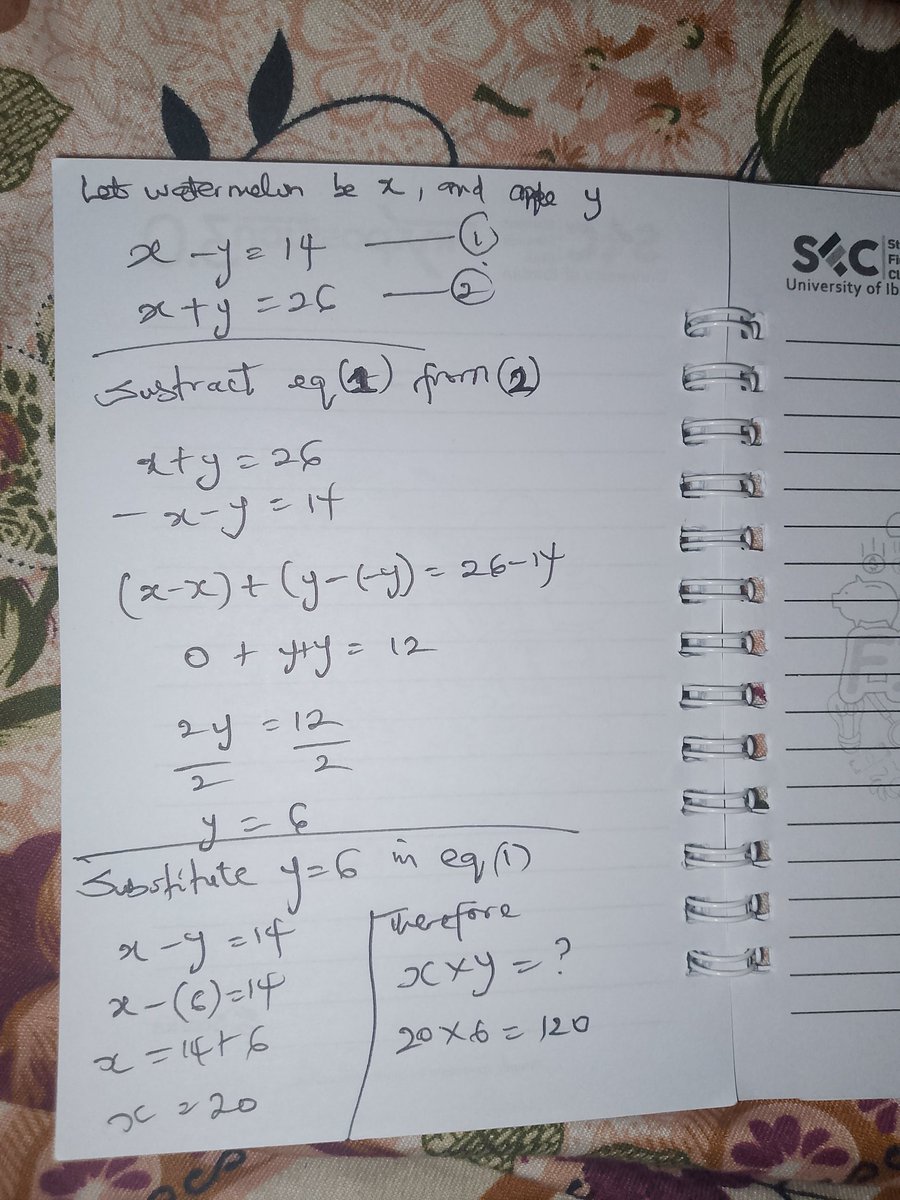 Lets watermelon be x, and apple y
x - y = 14 —— ①
x + y = 26 —— ②
Subtract eq (1) from (2)
x + y = 26
- x - y = 14
(x-x) + (y-(-y) = 26-14
0 + y+y = 12
2y = 12
2 2
y = 6
Substitute y=6 in eq (1)
x - y = 14
x - (6) = 14
x = 14 + 6
x = 20
Therefore
x × y = ?
20 × 6 = 120
SFC
University of Ib